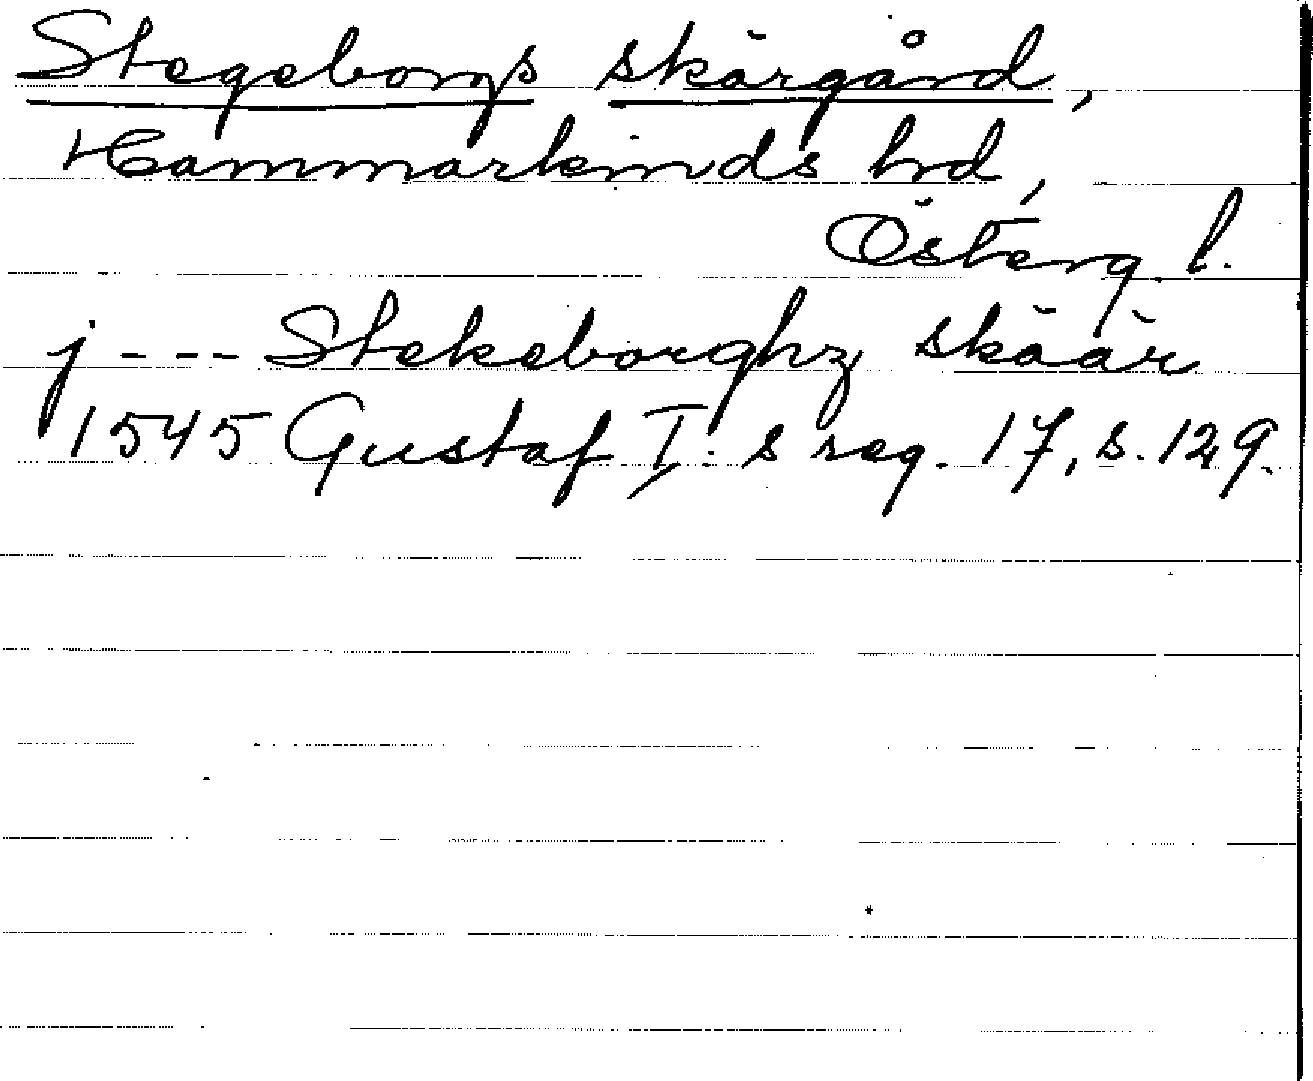 Stegeborgs skärgård,
Hammarkinds hd,
Österg. l.
j - - - Stekeborghz skäär
1545 Gustaf I:s reg. 17, s. 129.